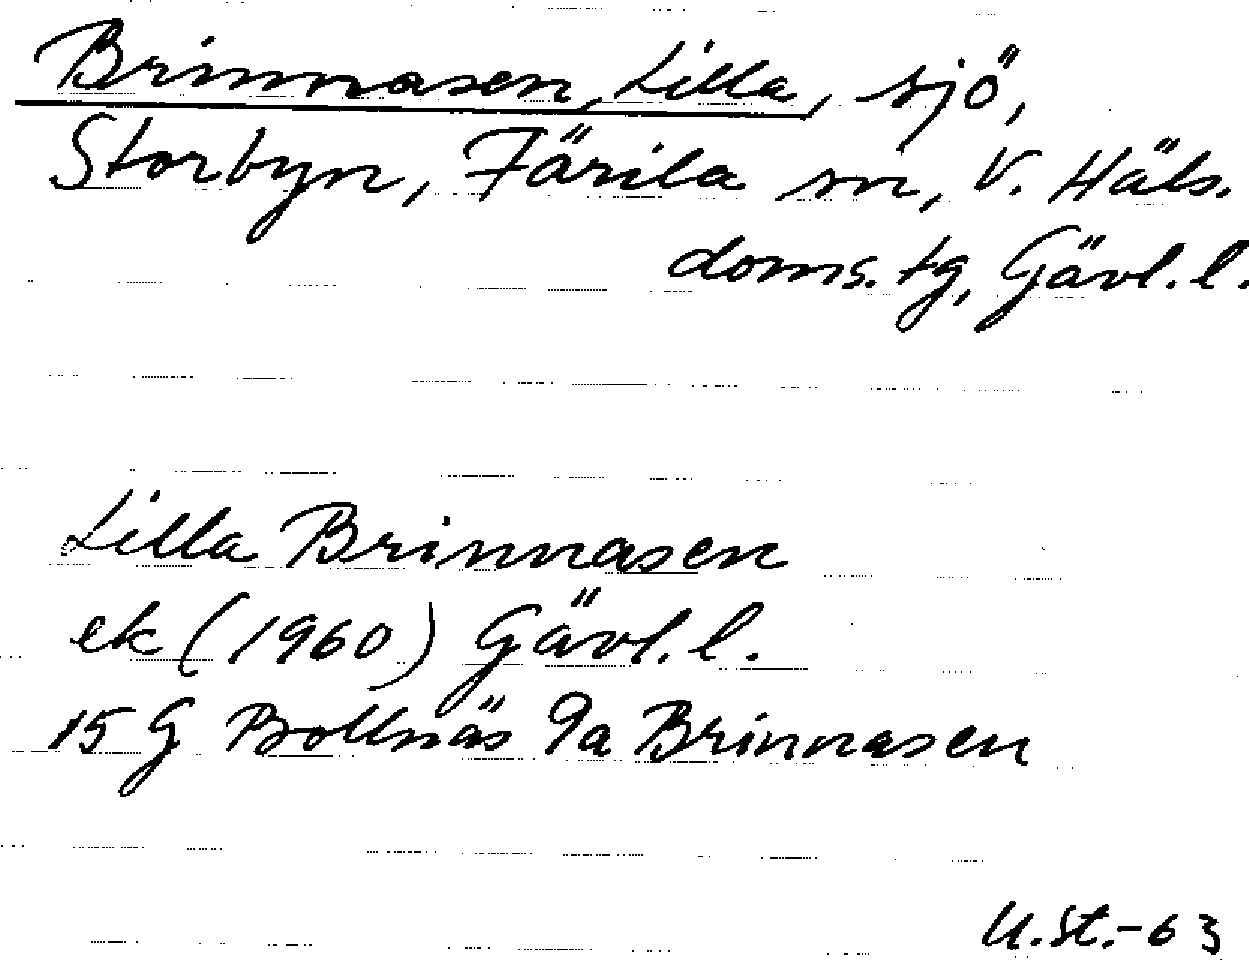 Brinnasen, Lilla, sjö,
Storbyn, Färila sn, V. Häls.
doms. tg, Gävl. l.
Lilla Brinnasen
ek (1960) Gävl. l.
15 G Bollnäs 9a Brinnasen
U.St.-63